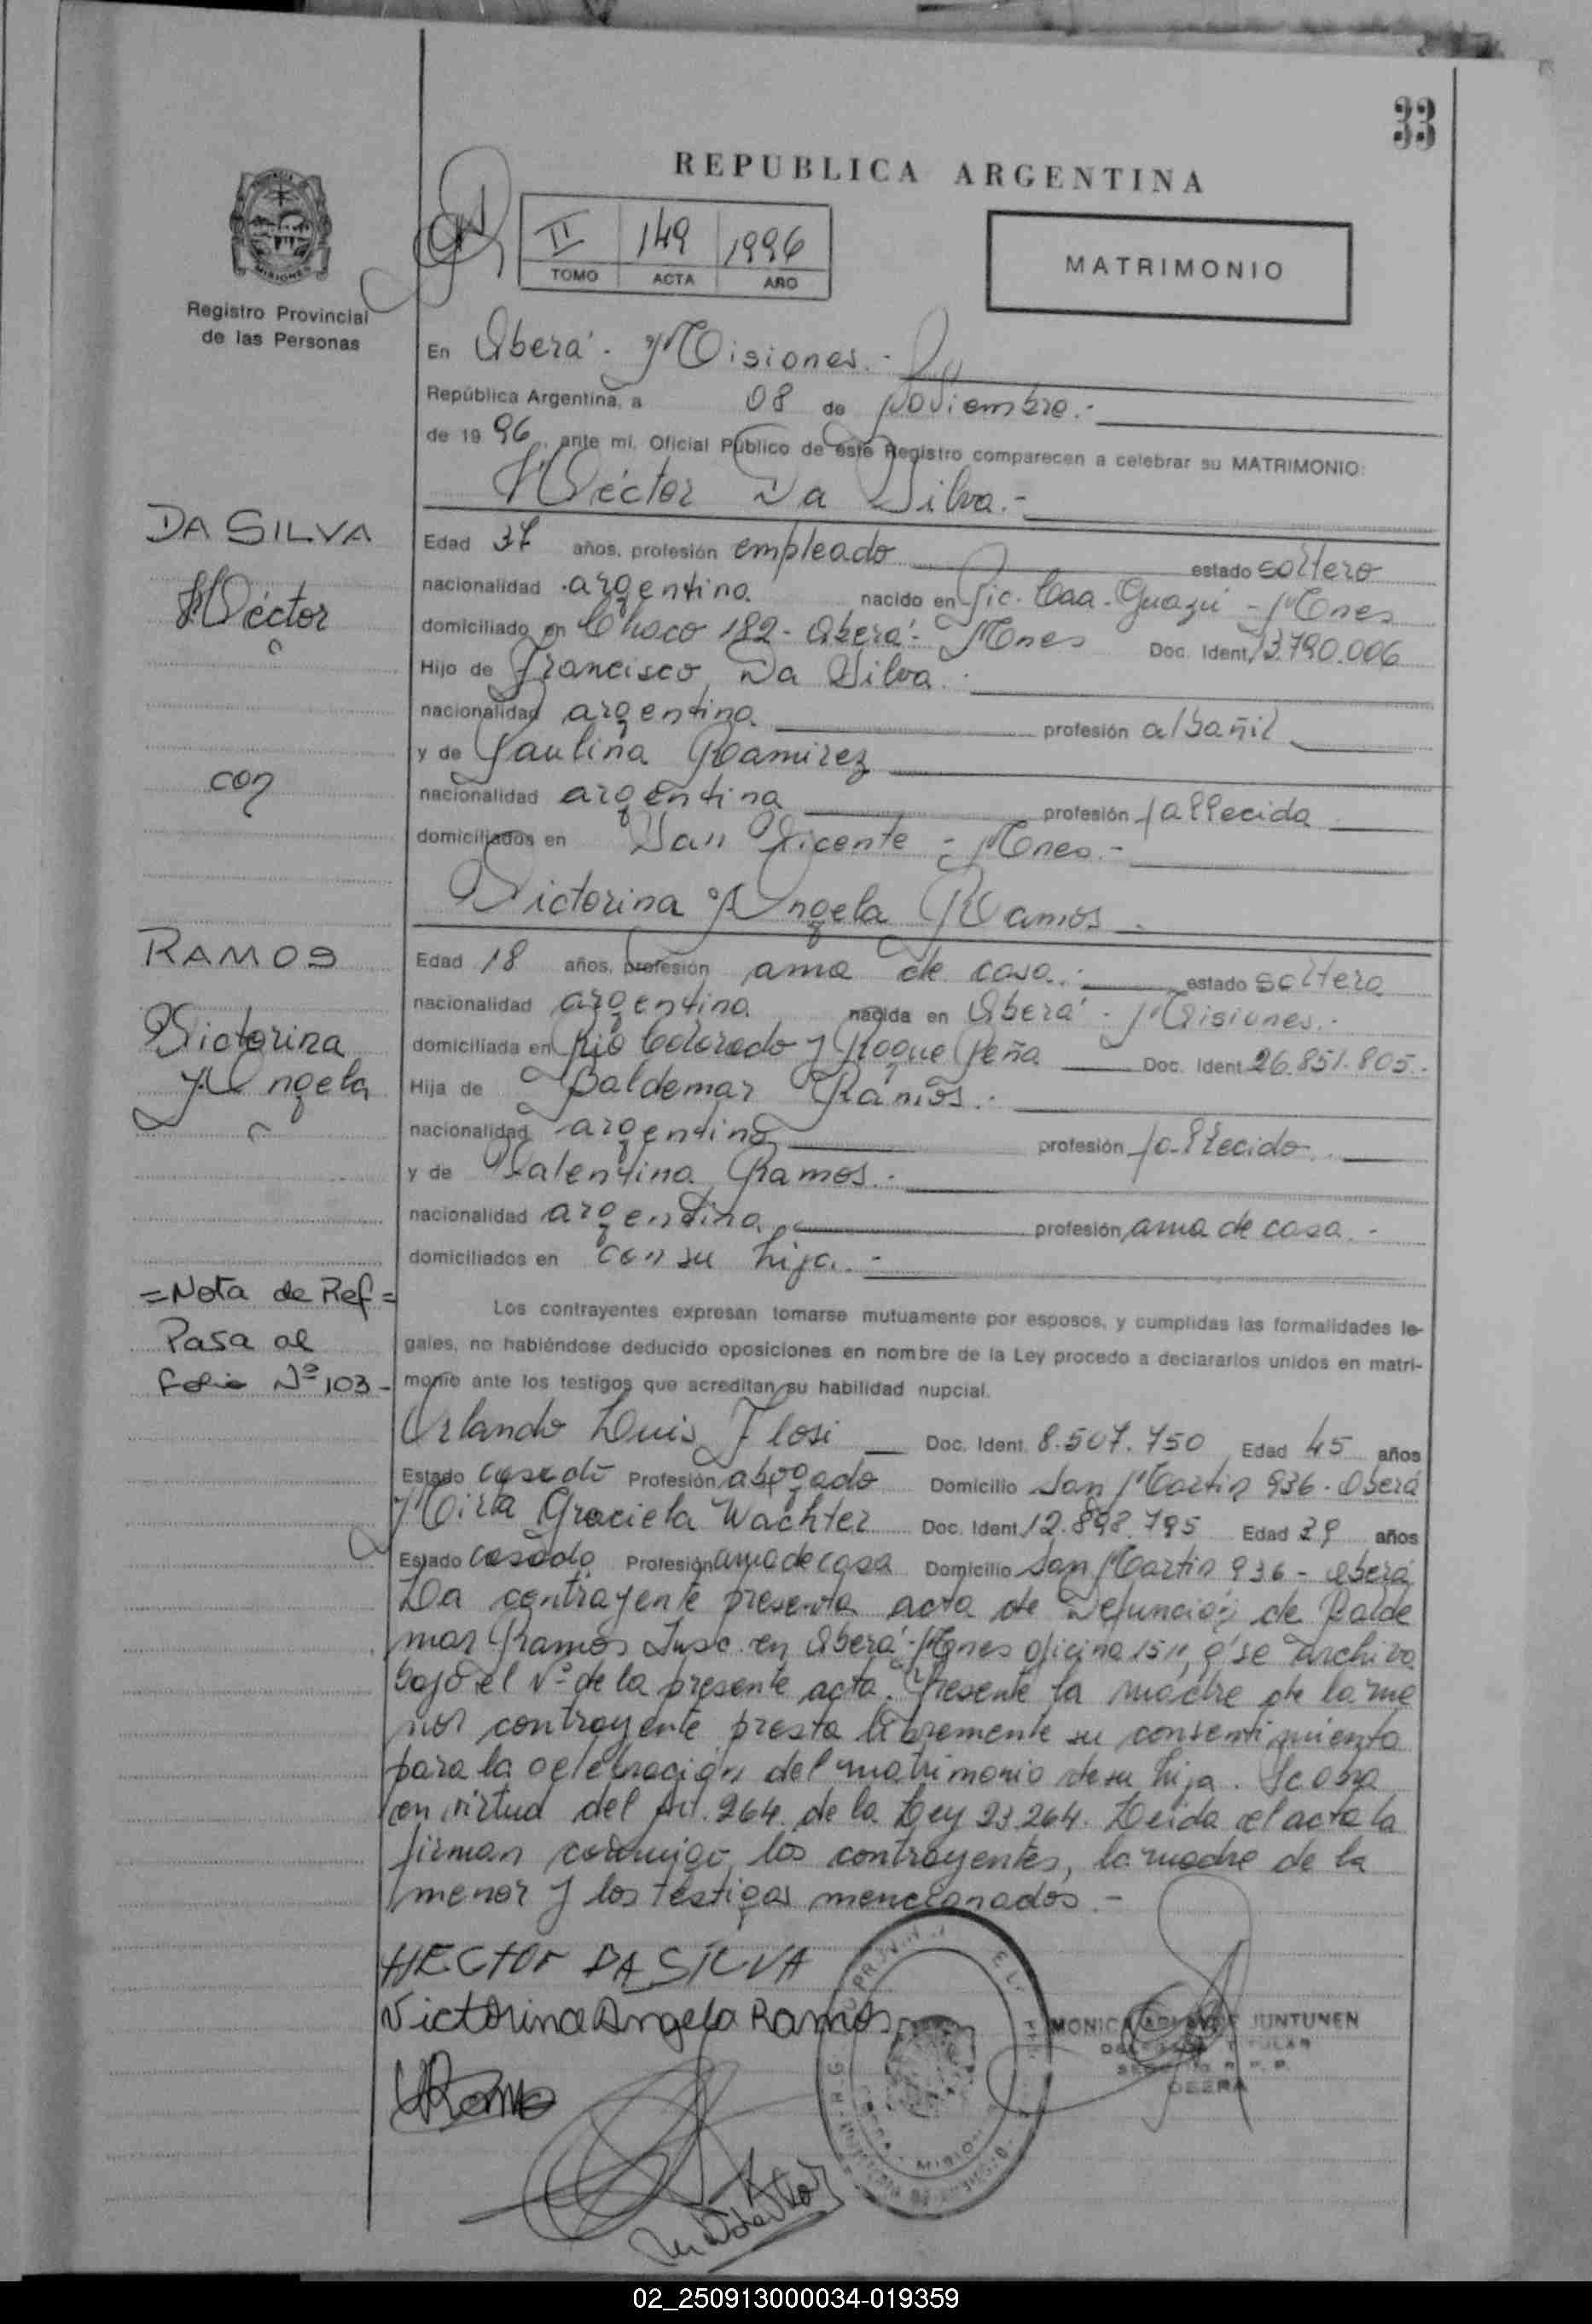 33
REPUBLICA ARGENTINA
MISIONES
Registro Provincial
de las Personas
II 149 1996
TOMO ACTA AÑO
MATRIMONIO
En Oberá - Misiones.-
República Argentina, a 08 de Noviembre.-
de 19 96, ante mi, Oficial Público de este Registro comparecen a celebrar su MATRIMONIO:
Héctor Da Silva.-
DA SILVA
Héctor
con
Edad 37 años, profesión empleado estado soltero
nacionalidad argentina nacido en Pic. Caa-Guazú - Mnes
domiciliado en Chaco 182 - Oberá - Mnes Doc. Ident. 13.790.006
Hijo de Francisco Da Silva.
nacionalidad argentina profesión albañil
y de Paulina Ramirez
nacionalidad argentina profesión fallecida
domiciliados en San Vicente - Mnes.-
Victorina Angela Ramos
RAMOS
Victorina
Angela
Edad 18 años, profesión ama de casa.- estado soltera
nacionalidad argentina nacida en Oberá - Misiones.-
domiciliada en Rio Colorado y Roque Peña Doc. Ident. 26.851.805.-
Hija de Baldemar Ramos.-
nacionalidad argentina profesión fallecido
y de Valentina Ramos.-
nacionalidad argentina profesión ama de casa.-
domiciliados en con su hija.-
=Nota de Ref=
Pasa al
Folio Nº 103-
Los contrayentes expresan tomarse mutuamente por esposos, y cumplidas las formalidades le-
gales, no habiéndose deducido oposiciones en nombre de la Ley procedo a declararlos unidos en matri-
monio ante los testigos que acreditan su habilidad nupcial.
Orlando Luis Flosi Doc. Ident. 8.507.750 Edad 45 años
Estado casado Profesión abogado Domicilio San Martin 936 - Oberá
Mirta Graciela Wachter Doc. Ident. 12.898.795 Edad 39 años
Estado casada Profesión ama de casa Domicilio San Martin 936 - Oberá
La contrayente presenta acta de Defunción de Balde
mar Ramos Insc. en Oberá - Mnes oficina 1511, q' se archiva
bajo el Nº de la presente acta. Presente la madre de la me
nor contrayente presta libremente su consentimiento
para la celebración del matrimonio de su hija.
en virtud del Art. 264 de la Ley 23.264. Leida el acta la
firman conmigo, los contrayentes, la madre de la
menor y los testigos mencionados.-
HECTOR DA SILVA
Victorina Angela Ramos
MONICA JUNTUNEN
OBERA
02_250913000034-019359